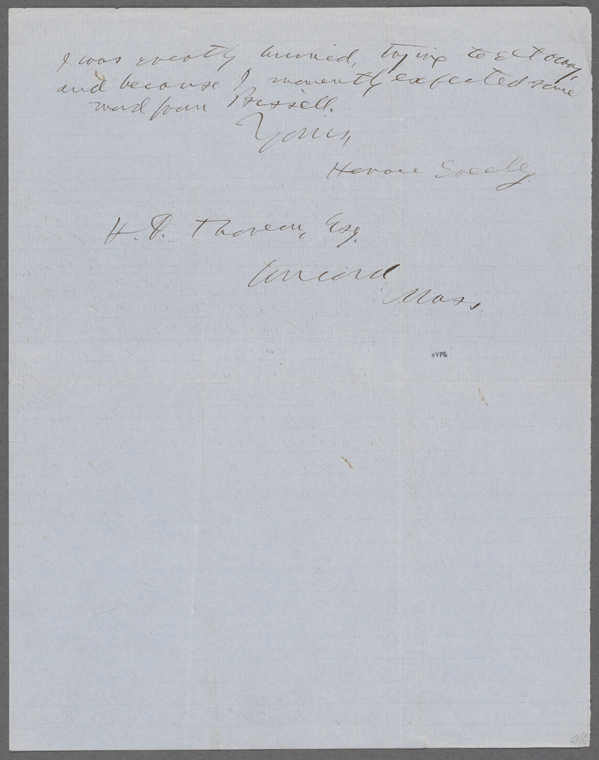 I was greatly hurried, trying to get away,
and because I momently expected some
word from Bissell.
Yours,
Horace Greeley.
H. D. Thoreau, Esq.
Concord
Mass.
NYPL